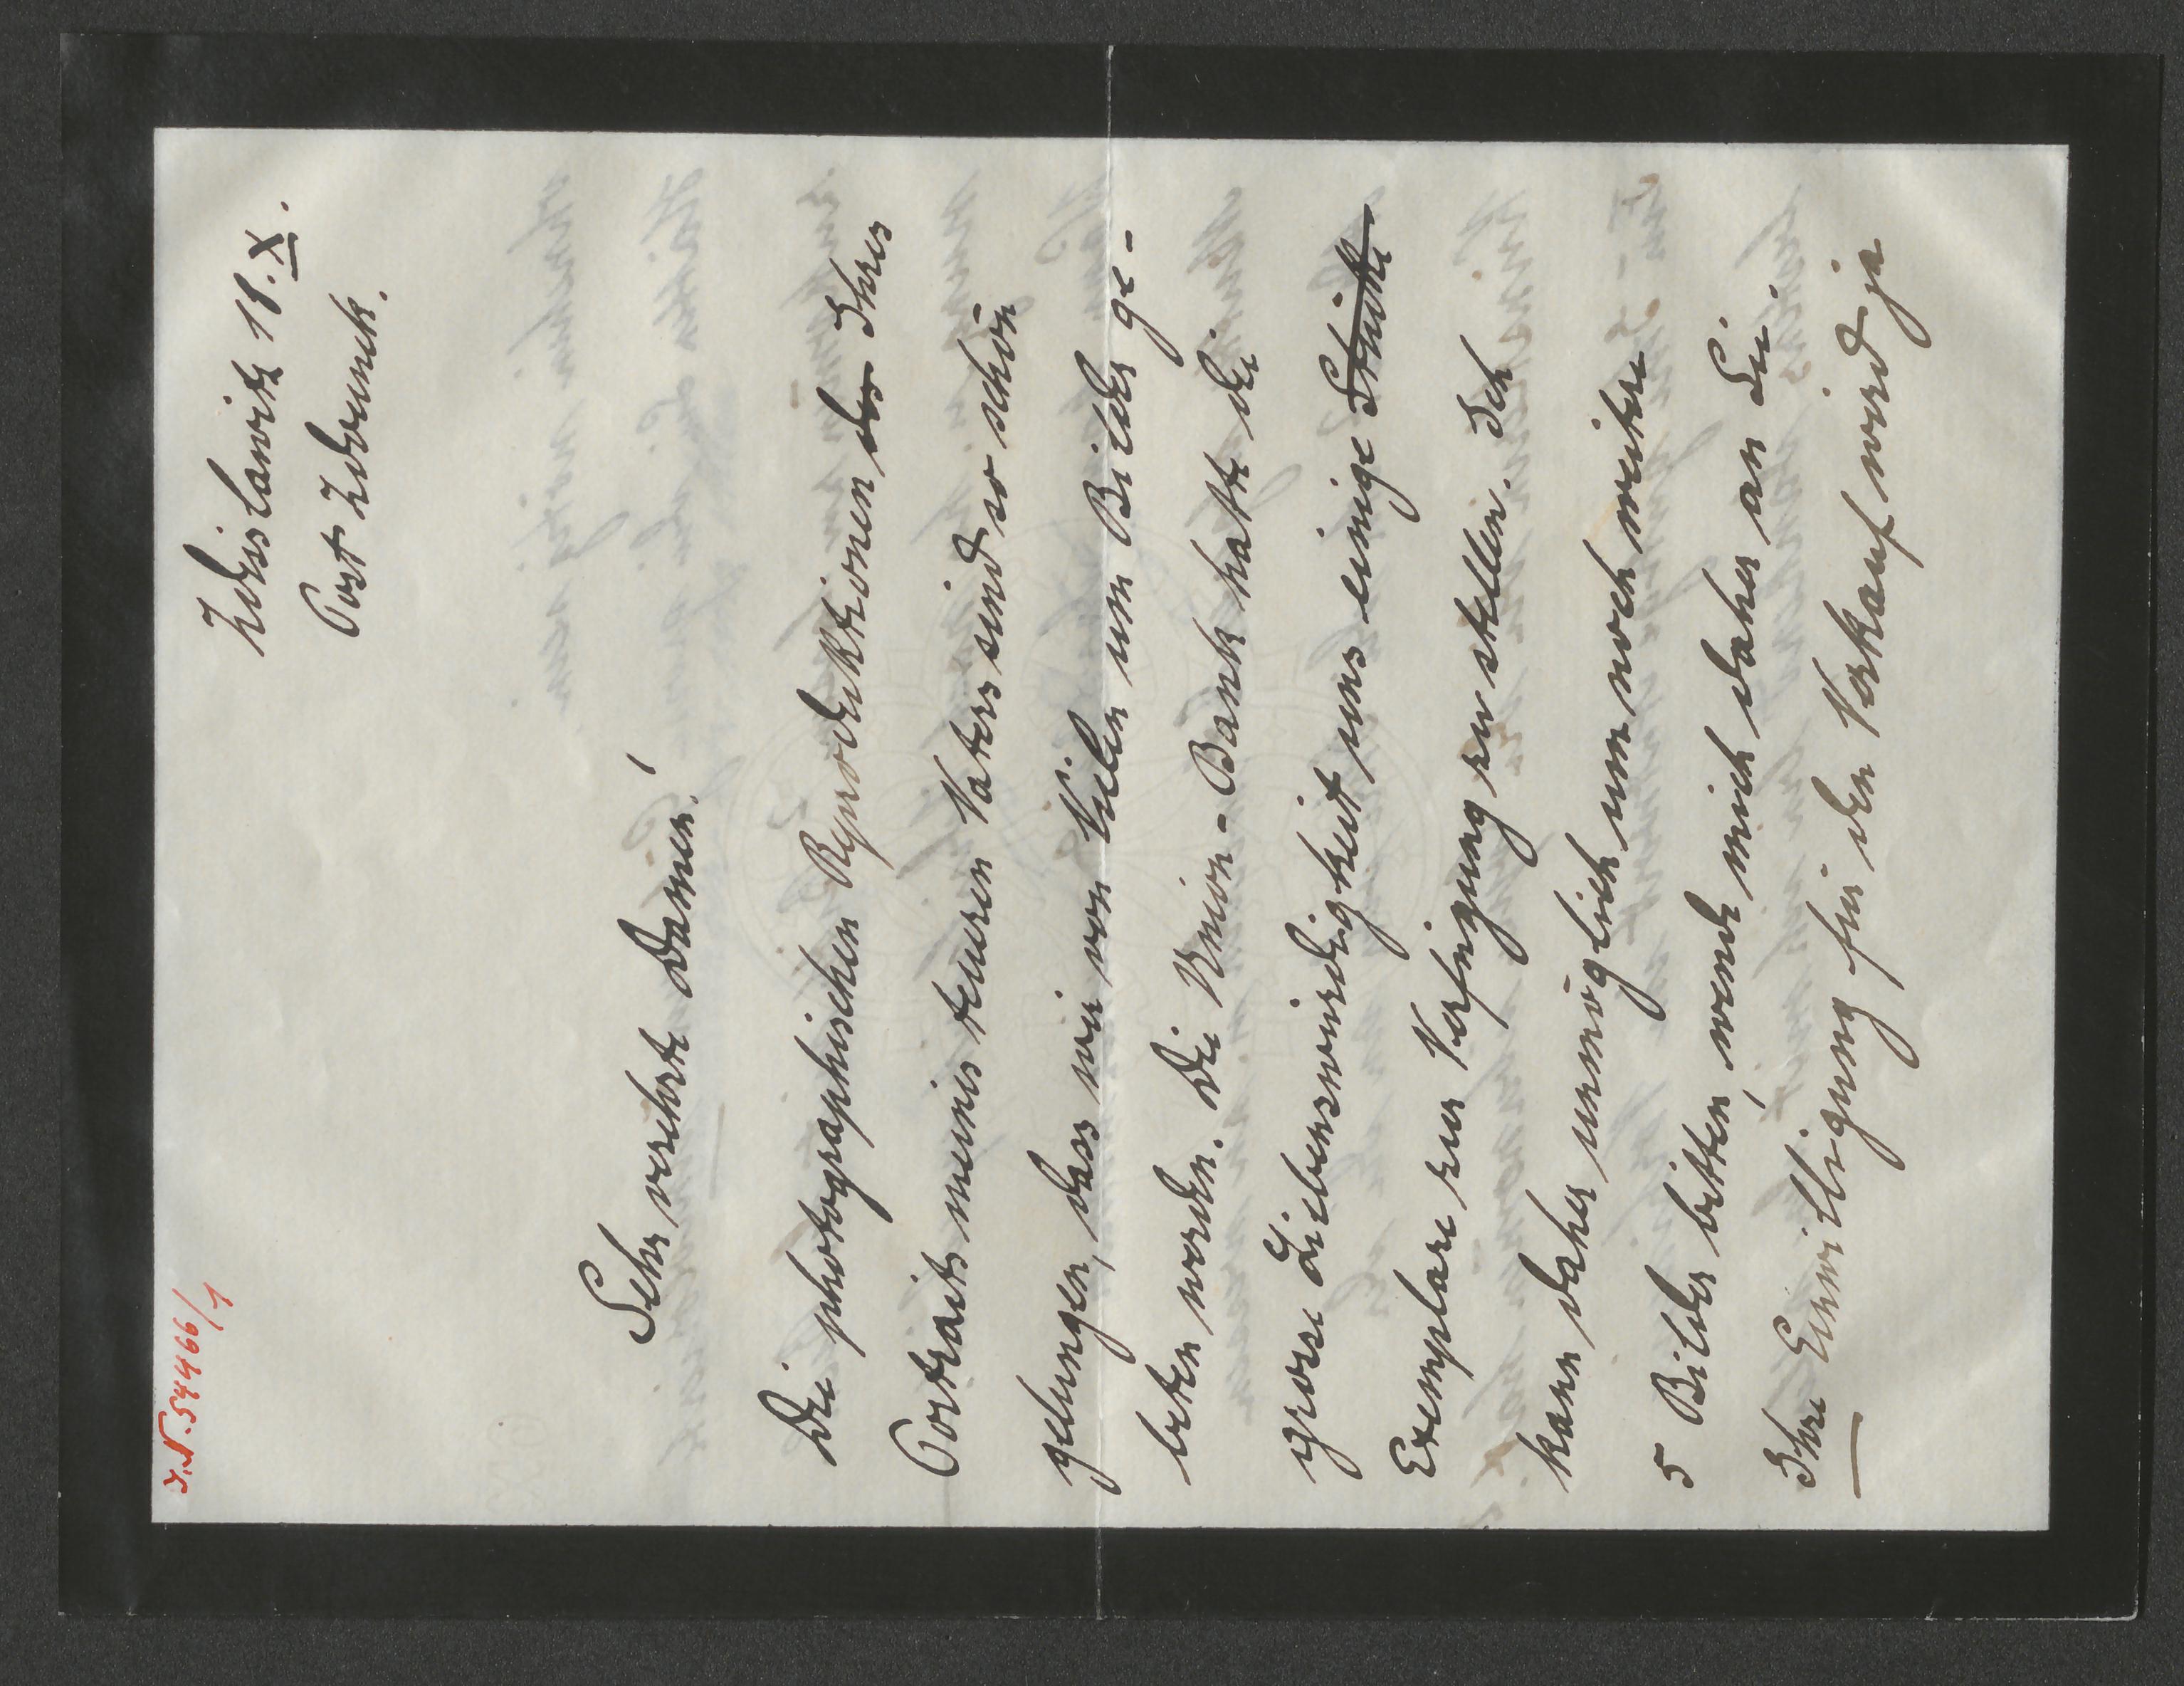 J.N. 54466/1
Zdislawitz 18. X.
Post Zdounek.
Sehr verehrte Damen!
Die photographischen Reproduktionen des Ihres
Portraits meines teuren Vaters sind so schön
gelungen, dass wir von Vielen um Bilder ge-
beten werden. Die Union-Bank hatte die
grosse Liebenswürdigkeit uns einige Stücke
Exemplare zur Verfügung zu stellen. Ich
kann daher unmöglich um noch weitere
5 Bilder bitten, wende mich daher an Sie.
Ihre Einwilligung für den Verkauf wird ja